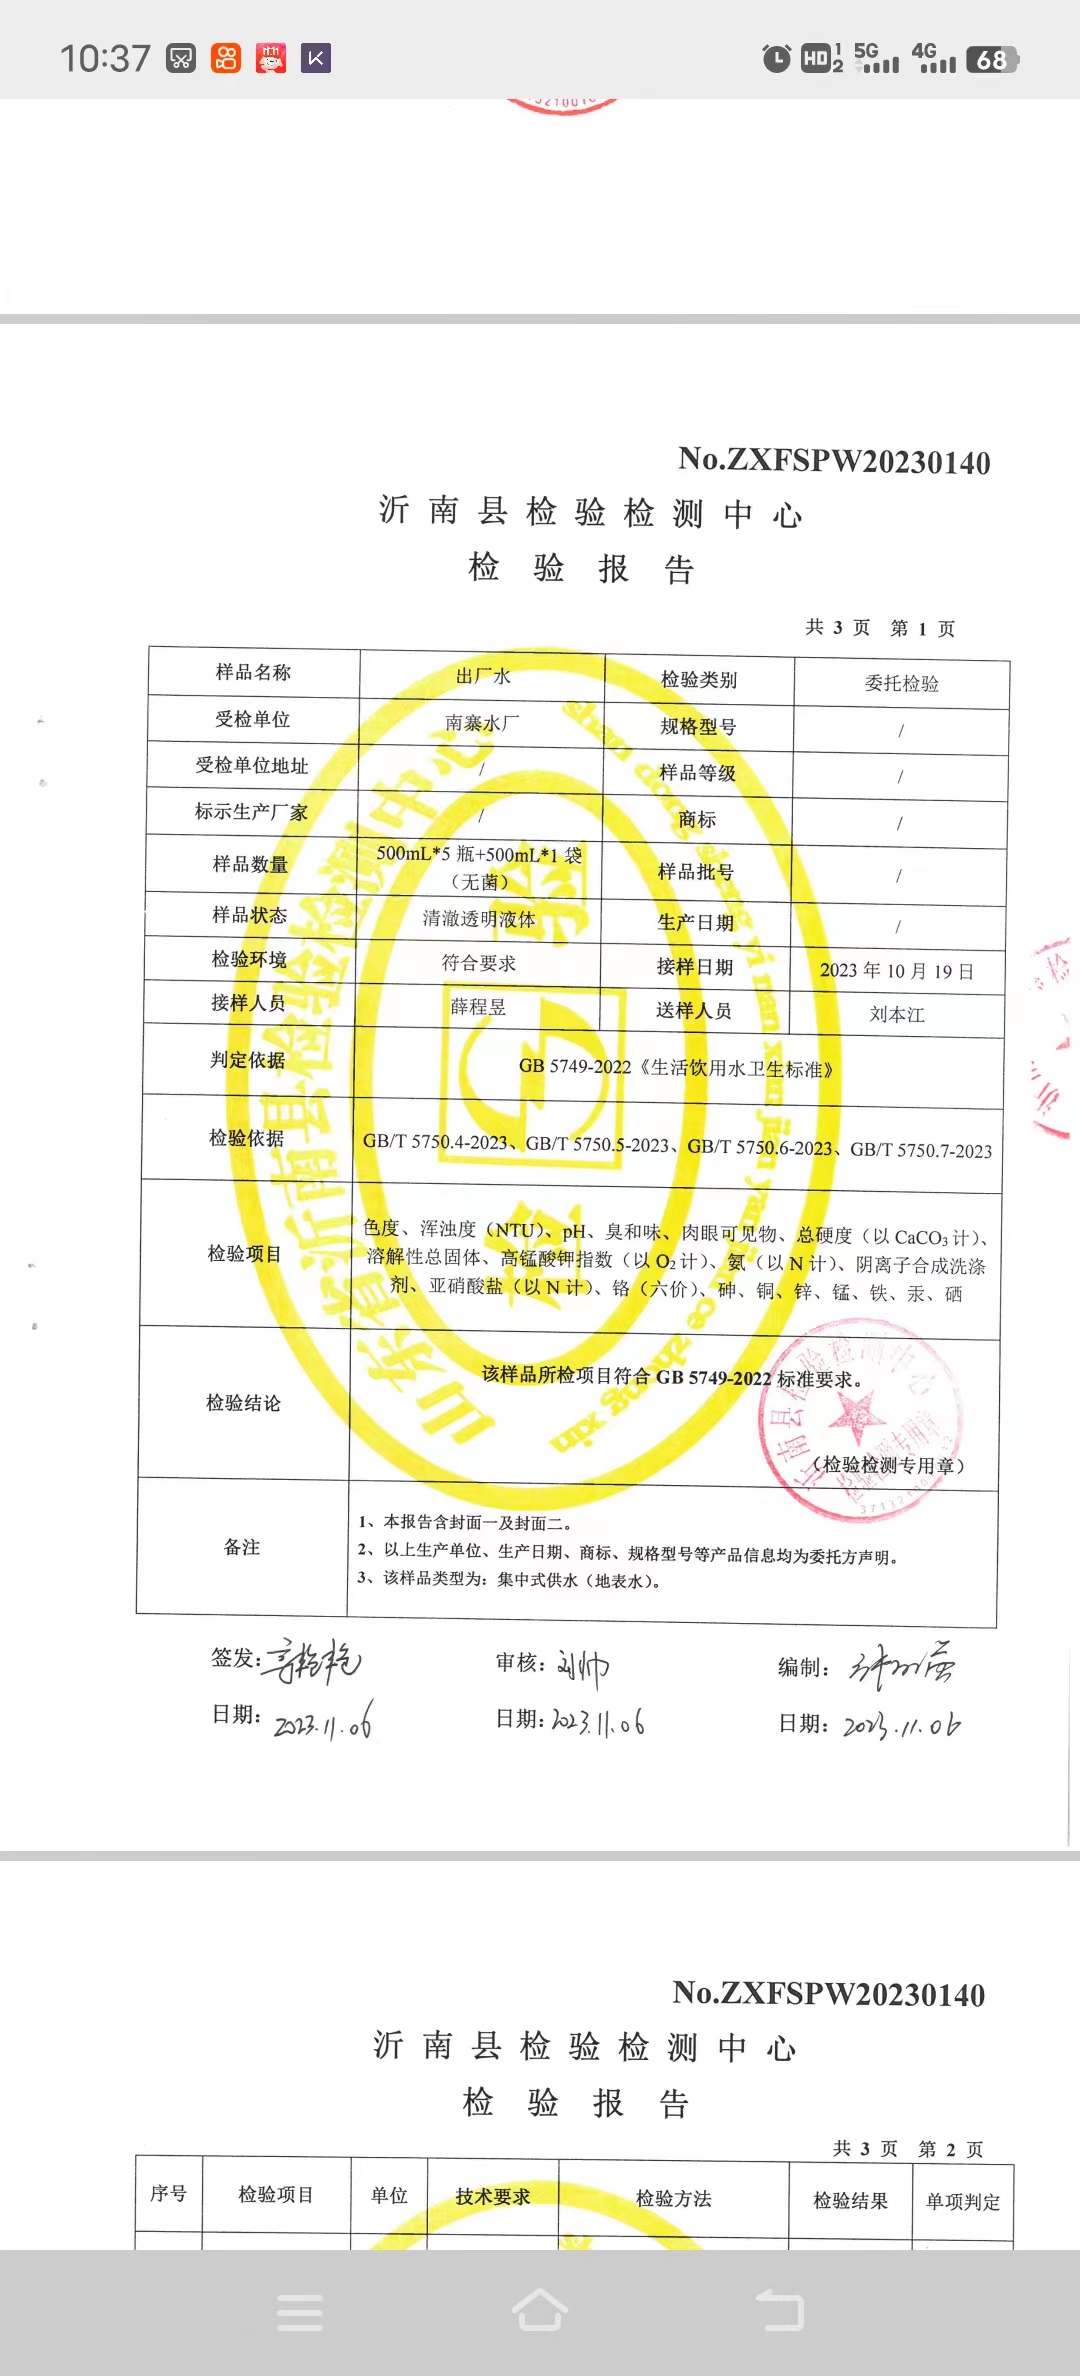 10:37
HD 1 2 5G 4G 68
No.ZXFSPW20230140
沂南县检验检测中心
检验报告
共 3 页 第 1 页
样品名称 出厂水 检验类别 委托检验
受检单位 南寨水厂 规格型号 /
受检单位地址 / 样品等级 /
标示生产厂家 / 商标 /
样品数量 500mL*5 瓶+500mL*1 袋 样品批号 /
（无菌）
样品状态 清澈透明液体 生产日期 /
检验环境 符合要求 接样日期 2023 年 10 月 19 日
接样人员 薛程昱 送样人员 刘本江
判定依据 GB 5749-2022《生活饮用水卫生标准》
检验依据 GB/T 5750.4-2023、GB/T 5750.5-2023、GB/T 5750.6-2023、GB/T 5750.7-2023
色度、浑浊度（NTU）、pH、臭和味、肉眼可见物、总硬度（以 CaCO₃ 计）、
检验项目 溶解性总固体、高锰酸钾指数（以 O₂ 计）、氨（以 N 计）、阴离子合成洗涤
剂、亚硝酸盐（以 N 计）、铬（六价）、砷、铜、锌、锰、铁、汞、硒
该样品所检项目符合 GB 5749-2022 标准要求。
检验结论
（检验检测专用章）
沂南县检验检测中心
检验检测专用章
山东省沂南县检验检测中心
shan dong sheng yi nan xian jian yan jian ce zhong xin
检验
1、本报告含封面一及封面二。
备注 2、以上生产单位、生产日期、商标、规格型号等产品信息均为委托方声明。
3、该样品类型为：集中式供水（地表水）。
签发： 审核：刘帅 编制：
日期：2023.11.06 日期：2023.11.06 日期：2023.11.06
No.ZXFSPW20230140
沂南县检验检测中心
检验报告
共 3 页 第 2 页
序号 检验项目 单位 技术要求 检验方法 检验结果 单项判定